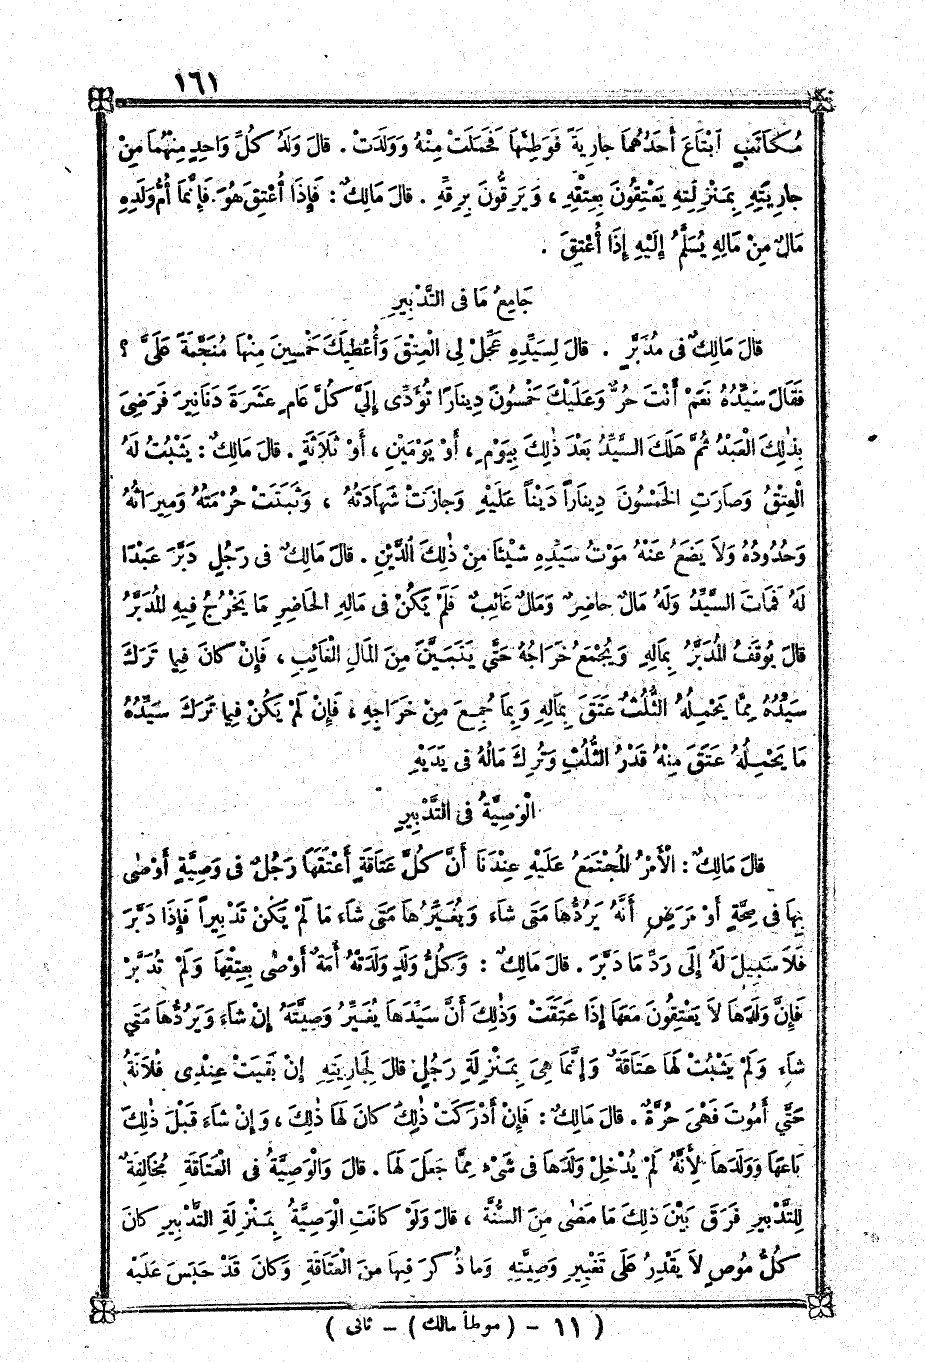 ١٦١
مُكَاتَبٍ ابْتَاعَ أَحَدُهُمَا جَارِيَةً فَوَطِئَهَا فَحَمَلَتْ مِنْهُ وَوَلَدَتْ . قَالَ وَلَدُ كُلِّ وَاحِدٍ مِنْهُمَا مِنْ
جَارِيَتِهِ بِمَنْزِلَتِهِ يَعْتِقُونَ بِعِتْقِهِ ، وَيَرِقُّونَ بِرِقِّهِ . قَالَ مَالِكٌ : فَإِذَا أُعْتِقَ هُوَ . فَإِنَّمَا أُمُّ وَلَدِهِ
مَالٌ مِنْ مَالِهِ يُسَلَّمُ إِلَيْهِ إِذَا أُعْتِقَ .
جَامِعُ مَا فِى التَّدْبِيرِ
قَالَ مَالِكٌ فِى مُدَبَّرٍ . قَالَ لِسَيِّدِهِ عَجِّلْ لِى الْعِتْقَ وَأُعْطِيكَ خَمْسِينَ مِنْهَا مُنَجَّمَةً عَلَىَّ ؟
فَقَالَ سَيِّدُهُ نَعَمْ أَنْتَ حُرٌّ وَعَلَيْكَ خَمْسُونَ دِينَارًا تُؤَدِّى إِلَىَّ كُلَّ عَامٍ عَشَرَةَ دَنَانِيرَ فَرَضِىَ
بِذٰلِكَ الْعَبْدُ ثُمَّ هَلَكَ السَّيِّدُ بَعْدَ ذٰلِكَ بِيَوْمٍ ، أَوْ يَوْمَيْنِ ، أَوْ ثَلَاثَةٍ . قَالَ مَالِكٌ : يَثْبُتُ لَهُ
الْعِتْقُ وَصَارَتِ الْخَمْسُونَ دِينَاراً دَيْناً عَلَيْهِ وَجَازَتْ شَهَادَتُهُ ، وَثَبَتَتْ حُرْمَتُهُ وَمِيرَاثُهُ
وَحُدُودُهُ وَلاَ يَضَعُ عَنْهُ مَوْتُ سَيِّدِهِ شَيْئاً مِنْ ذٰلِكَ الدَّيْنِ . قَالَ مَالِكٌ فِى رَجُلٍ دَبَّرَ عَبْدًا
لَهُ فَمَاتَ السَّيِّدُ وَلَهُ مَالٌ حَاضِرٌ وَمَالٌ غَائِبٌ فَلَمْ يَكُنْ فِى مَالِهِ الْحَاضِرِ مَا يَخْرُجُ فِيهِ الْمُدَبَّرُ
قَالَ يُوقَفُ الْمُدَبَّرُ بِمَالِهِ وَيُجْمَعُ خَرَاجُهُ حَتَّى يَتَبَيَّنَ مِنَ الْمَالِ الْغَائِبِ ، فَإِنْ كَانَ فِيمَا تَرَكَ
سَيِّدُهُ مِمَّا يَحْمِلُهُ الثُّلُثُ عَتَقَ بِمَالِهِ وَبِمَا جُمِعَ مِنْ خَرَاجِهِ ، فَإِنْ لَمْ يَكُنْ فِيمَا تَرَكَ سَيِّدُهُ
مَا يَحْمِلُهُ عَتَقَ مِنْهُ قَدْرُ الثُّلُثِ وَتُرِكَ مَالُهُ فِى يَدَيْهِ
الْوَصِيَّةُ فِى التَّدْبِيرِ
قَالَ مَالِكٌ : الْأَمْرُ الْمُجْتَمَعُ عَلَيْهِ عِنْدَنَا أَنَّ كُلَّ عَتَاقَةٍ أَعْتَقَهَا رَجُلٌ فِى وَصِيَّةٍ أَوْصٰى
بِهَا فِى صِحَّةٍ أَوْ مَرَضٍ أَنَّهُ يَرُدُّهَا مَتَى شَاءَ وَيُغَيِّرُهَا مَتَى شَاءَ مَا لَمْ يَكُنْ تَدْبِيراً فَإِذَا دَبَّرَ
فَلاَ سَبِيلَ لَهُ إِلَى رَدِّ مَا دَبَّرَ . قَالَ مَالِكٌ : وَكُلُّ وَلَدٍ وَلَدَتْهُ أَمَةٌ أَوْصٰى بِعِتْقِهَا وَلَمْ تُدَبَّرْ
فَإِنَّ وَلَدَهَا لاَ يَعْتِقُونَ مَعَهَا إِذَا عَتَقَتْ وَذٰلِكَ أَنَّ سَيِّدَهَا يُغَيِّرُ وَصِيَّتَهُ إِنْ شَاءَ وَيَرُدُّهَا مَتَى
شَاءَ وَلَمْ يَثْبُتْ لَهَا عَتَاقَةٌ وَإِنَّمَا هِىَ بِمَنْزِلَةِ رَجُلٍ قَالَ لِجَارِيَتِهِ إِنْ بَقِيَتْ عِنْدِى فُلاَنَةُ
حَتَّى أَمُوتَ فَهْىَ حُرَّةٌ . قَالَ مَالِكٌ : فَإِنْ أَدْرَكَتْ ذٰلِكَ كَانَ لَهَا ذٰلِكَ ، وَإِنْ شَاءَ قَبْلَ ذٰلِكَ
بَاعَهَا وَوَلَدَهَا لِأَنَّهُ لَمْ يُدْخِلْ وَلَدَهَا فِى شَىْءٍ مِمَّا جَعَلَ لَهَا . قَالَ وَالْوَصِيَّةُ فِى الْعَتَاقَةِ مُخَالِفَةٌ
لِلتَّدْبِيرِ فَرَقَ بَيْنَ ذٰلِكَ مَا مَضٰى مِنَ السُّنَّةِ ، قَالَ وَلَوْ كَانَتِ الْوَصِيَّةُ بِمَنْزِلَةِ التَّدْبِيرِ كَانَ
كُلُّ مُوصٍ لاَ يَقْدِرُ عَلَى تَغْيِيرِ وَصِيَّتِهِ وَمَا ذُكِرَ فِيهَا مِنَ الْعَتَاقَةِ وَكَانَ قَدْ حَبَسَ عَلَيْهِ
( ١١ - ( موطأ مالك ) - ثانى )